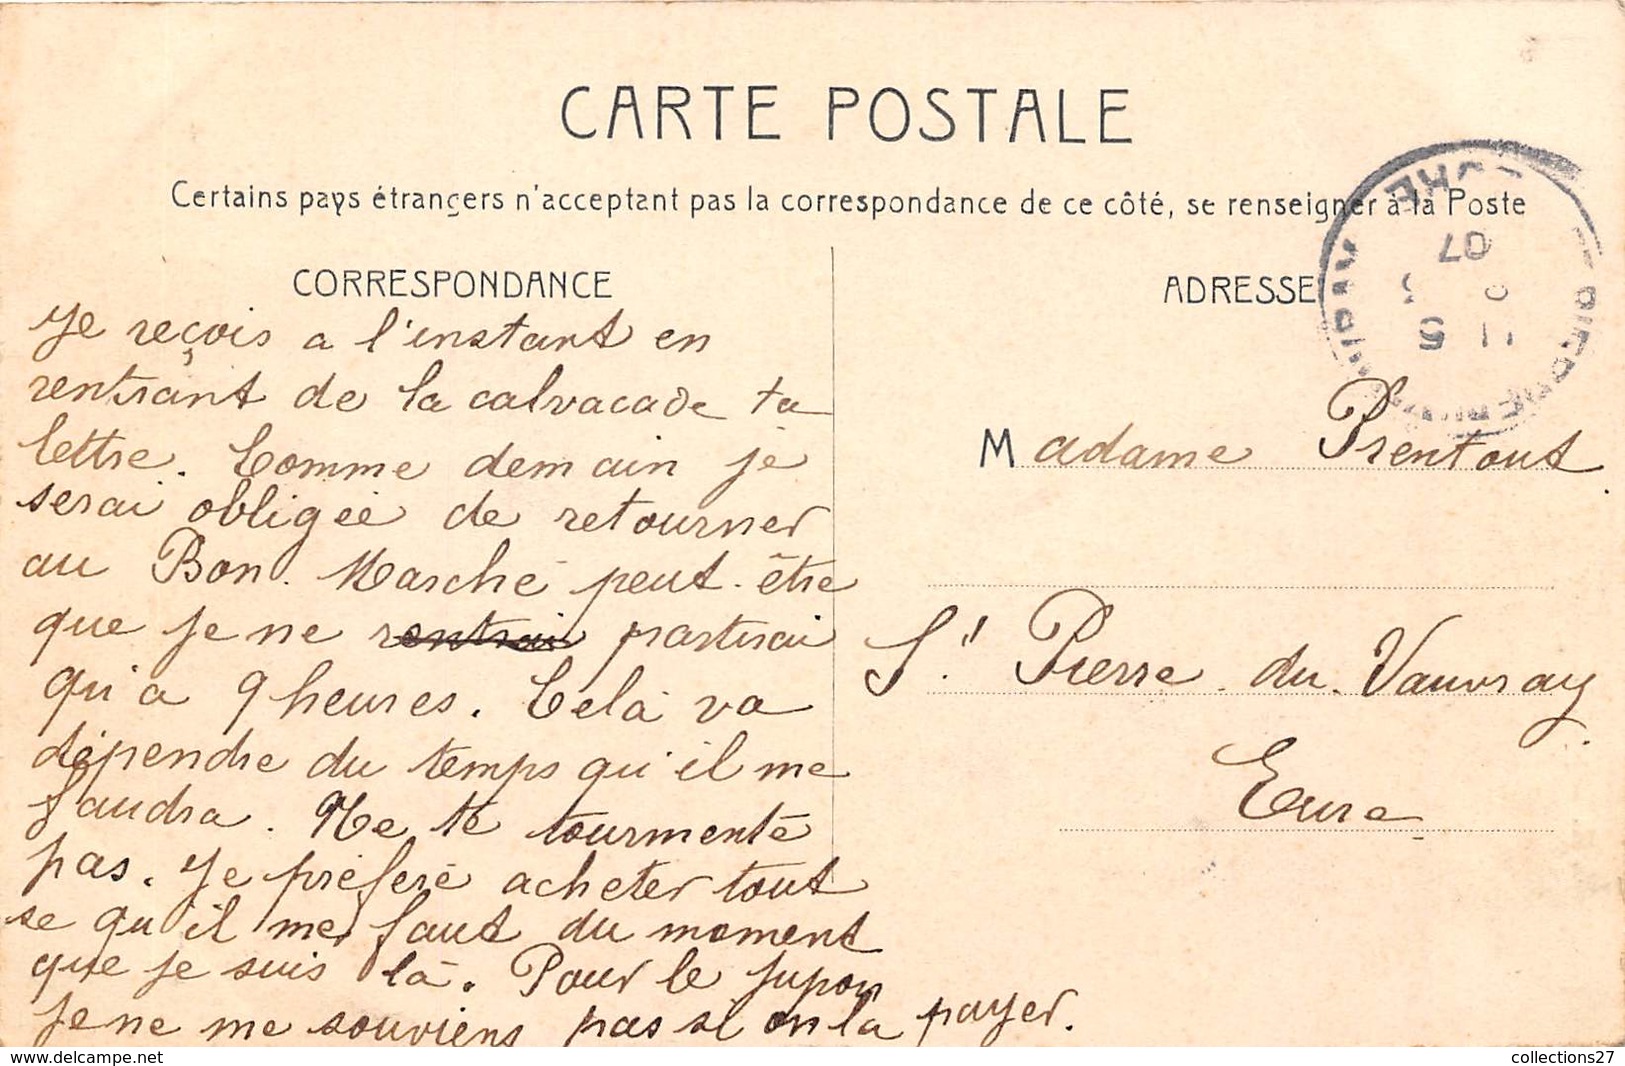 CARTE POSTALE
Certains pays étrangers n'acceptent pas la correspondance de ce côté, se renseigner à la Poste
CORRESPONDANCE
Je reçois a l'instant en
rentrant de la calvacade ta
lettre. Comme demain je
serai obligée de retourner
au Bon Marché peut-être
que je ne rentrai partirai
qu'a 9 heures. Celà va
dépendre du temps qu'il me
faudra. Ne te tourmente
pas. Je préfere acheter tout
se qu'il me faut du moment
que je suis là. Pour le jupon
je ne me souviens pas si on la payer.
ADRESSE
Madame Prentout
St Pierre du Vauvray
Eure
07
11 5
collections27